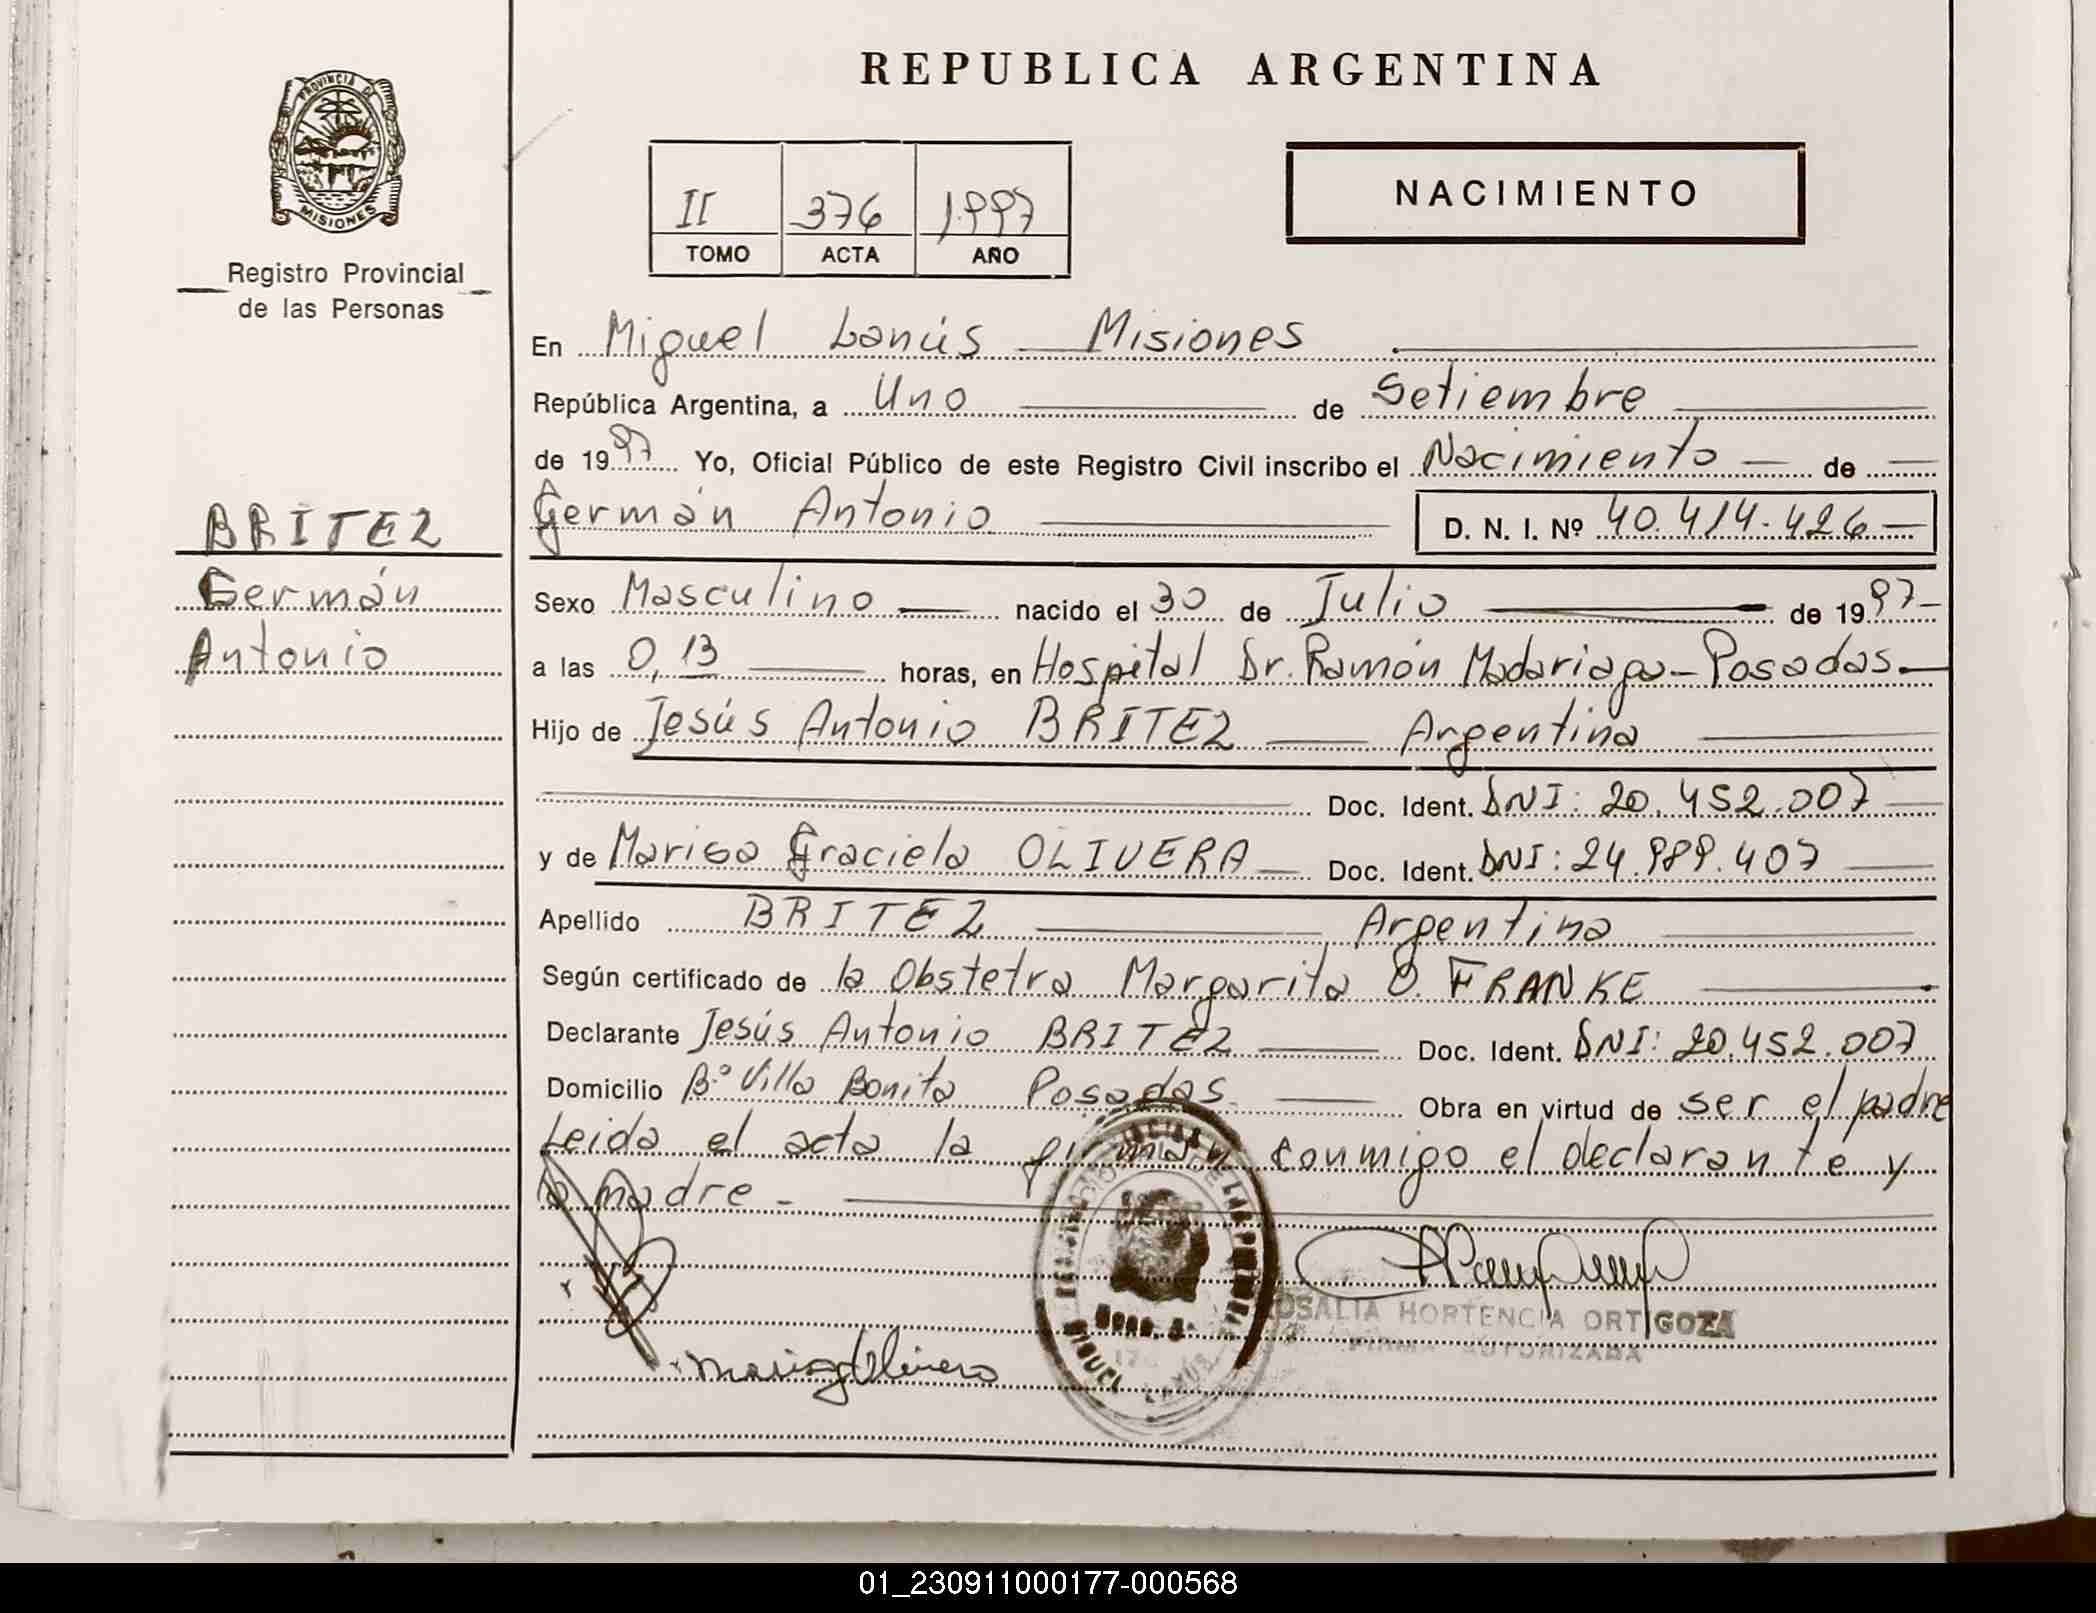 REPUBLICA ARGENTINA
PROVINCIA DE
MISIONES
Registro Provincial
de las Personas
II 376 1997
TOMO ACTA AÑO
NACIMIENTO
BRITEZ
Germán
Antonio
En Miguel Lanús Misiones
República Argentina, a Uno de Setiembre
de 1997 Yo, Oficial Público de este Registro Civil inscribo el Nacimiento de
Germán Antonio D. N. I. Nº 40.414.426
Sexo Masculino nacido el 30 de Julio de 1997
a las 0,13 horas, en Hospital Dr. Ramón Madariaga - Posadas
Hijo de Jesús Antonio BRITEZ Argentina
Doc. Ident. DNI: 20.452.007
y de Marisa Graciela OLIVERA Doc. Ident. DNI: 24.989.407
Apellido BRITEZ Argentina
Según certificado de la Obstetra Margarita O. FRANKE
Declarante Jesús Antonio BRITEZ Doc. Ident. DNI: 20.452.007
Domicilio Bº Villa Bonita Posadas Obra en virtud de ser el padre
Leida el acta la firman conmigo el declarante y
la madre -
ROSALIA HORTENCIA ORTIGOZA
FIRMA AUTORIZADA
MIGUEL LANUS
01_230911000177-000568